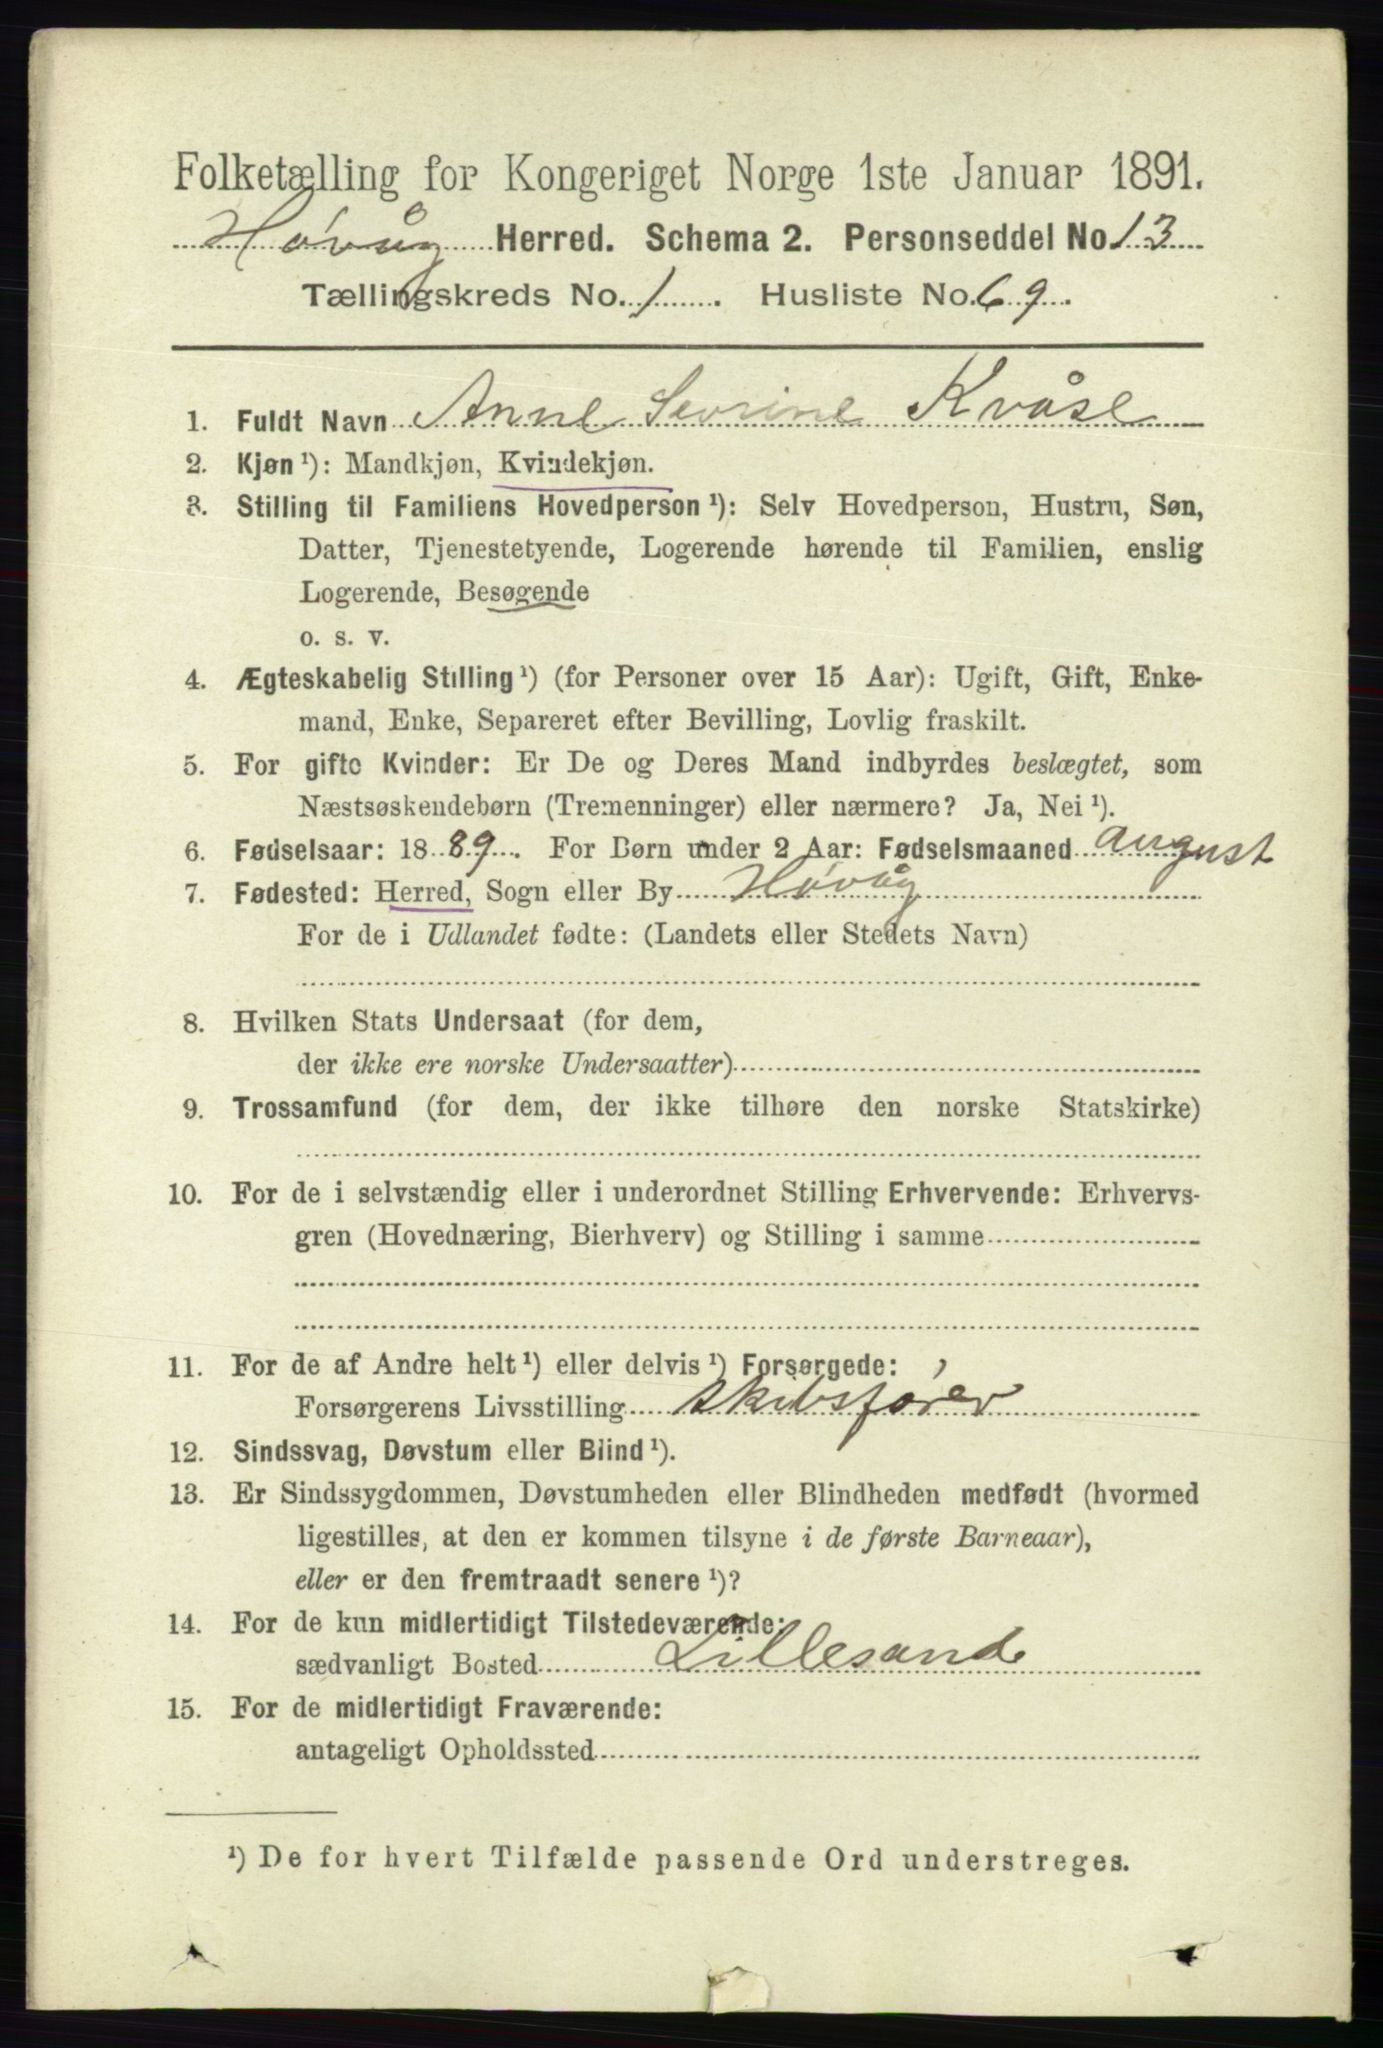 Folketælling for Kongeriget Norge 1ste Januar 1891.
Høvåg Herred. Schema 2. Personseddel No. 13
Tællingskreds No. 1. Husliste No. 69.
1. Fuldt Navn Anne Sevrine Kvåse
2. Kjøn ¹): Mandkjøn, Kvindekjøn.
3. Stilling til Familiens Hovedperson ¹): Selv Hovedperson, Hustru, Søn,
Datter, Tjenestetyende, Logerende hørende til Familien, enslig
Logerende, Besøgende
o. s. v.
4. Ægteskabelig Stilling ¹) (for Personer over 15 Aar): Ugift, Gift, Enke-
mand, Enke, Separeret efter Bevilling, Lovlig fraskilt.
5. For gifte Kvinder: Er De og Deres Mand indbyrdes beslægtet, som
Næstsøskendebørn (Tremenninger) eller nærmere? Ja, Nei ¹).
6. Fødselsaar: 1889. For Børn under 2 Aar: Fødselsmaaned august
7. Fødested: Herred, Sogn eller By Høvåg
For de i Udlandet fødte: (Landets eller Stedets Navn)
8. Hvilken Stats Undersaat (for dem,
der ikke ere norske Undersaatter)
9. Trossamfund (for dem, der ikke tilhøre den norske Statskirke)
10. For de i selvstændig eller i underordnet Stilling Erhvervende: Erhvervs-
gren (Hovednæring, Bierhverv) og Stilling i samme
11. For de af Andre helt ¹) eller delvis ¹) Forsørgede:
Forsørgerens Livsstilling skibsfører
12. Sindssvag, Døvstum eller Blind ¹).
13. Er Sindssygdommen, Døvstumheden eller Blindheden medfødt (hvormed
ligestilles, at den er kommen tilsyne i de første Barneaar),
eller er den fremtraadt senere ¹)?
14. For de kun midlertidigt Tilstedeværende:
sædvanligt Bosted Lillesand
15. For de midlertidigt Fraværende:
antageligt Opholdssted
¹) De for hvert Tilfælde passende Ord understreges.